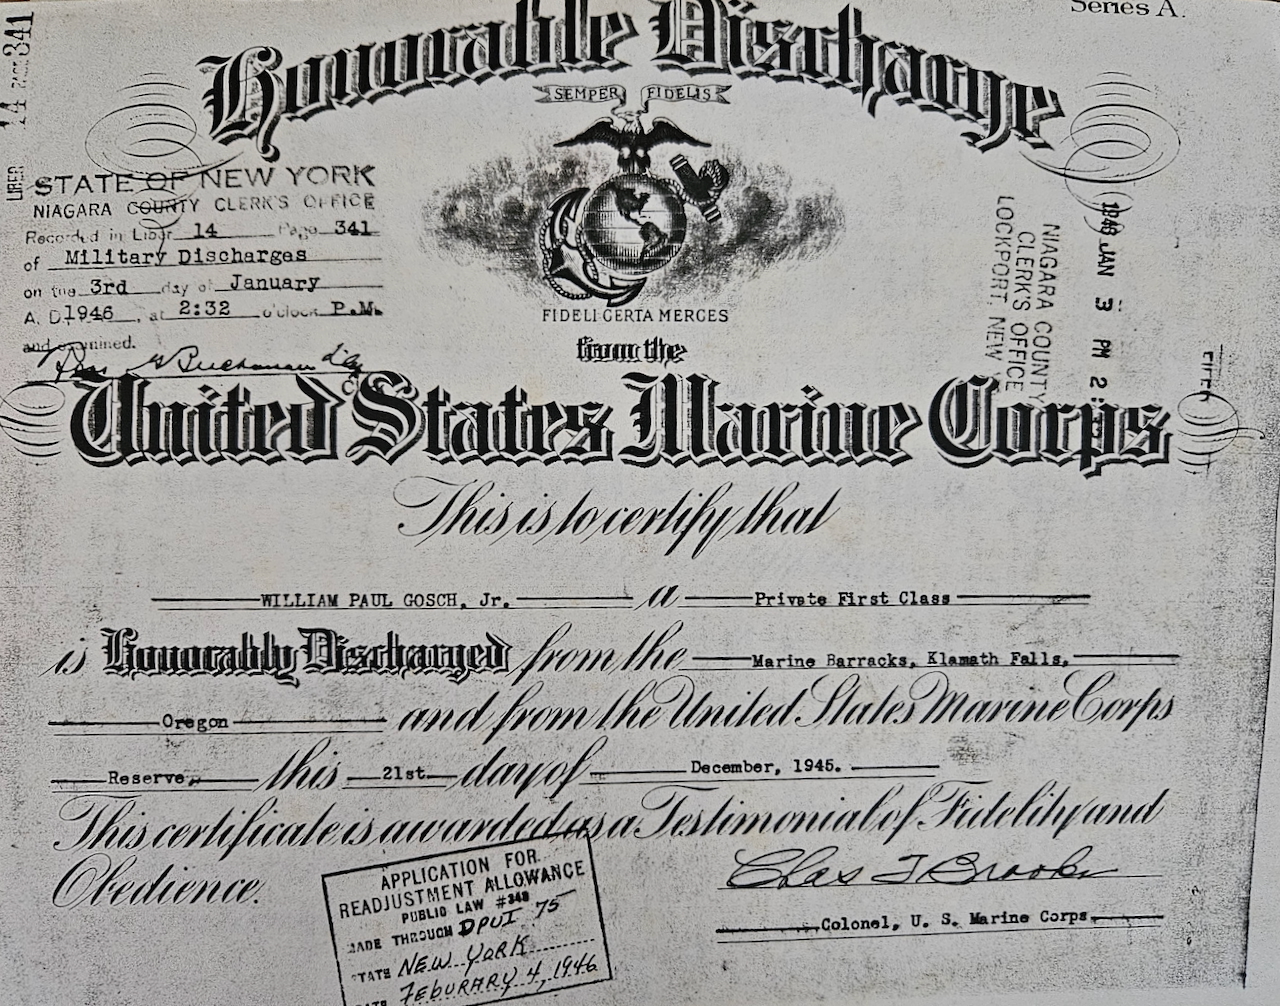 Series A.
Honorable Discharge
SEMPER FIDELIS
LIBER 14 PAGE 341
STATE OF NEW YORK
NIAGARA COUNTY CLERK'S OFFICE
Recorded in Liber 14 Page 341
of Military Discharges
on the 3rd day of January
A. D. 1946, at 2:32 o'clock P.M.
and examined.
Buchanan
1946 JAN 3 PM 2:
NIAGARA COUNTY
CLERK'S OFFICE
LOCKPORT, NEW
FIDELI CERTA MERCES
from the
United States Marine Corps
This is to certify that
WILLIAM PAUL GOSCH, Jr. a Private First Class
is Honorably Discharged from the Marine Barracks, Klamath Falls,
Oregon and from the United States Marine Corps
Reserve this 21st day of December, 1945.
This certificate is awarded as a Testimonial of Fidelity and
Obedience.
Chas F Brooks
Colonel, U. S. Marine Corps
APPLICATION FOR
READJUSTMENT ALLOWANCE
PUBLIC LAW #346
MADE THROUGH DPUI 75
STATE NEW YORK
DATE FEBURARY 4, 1946